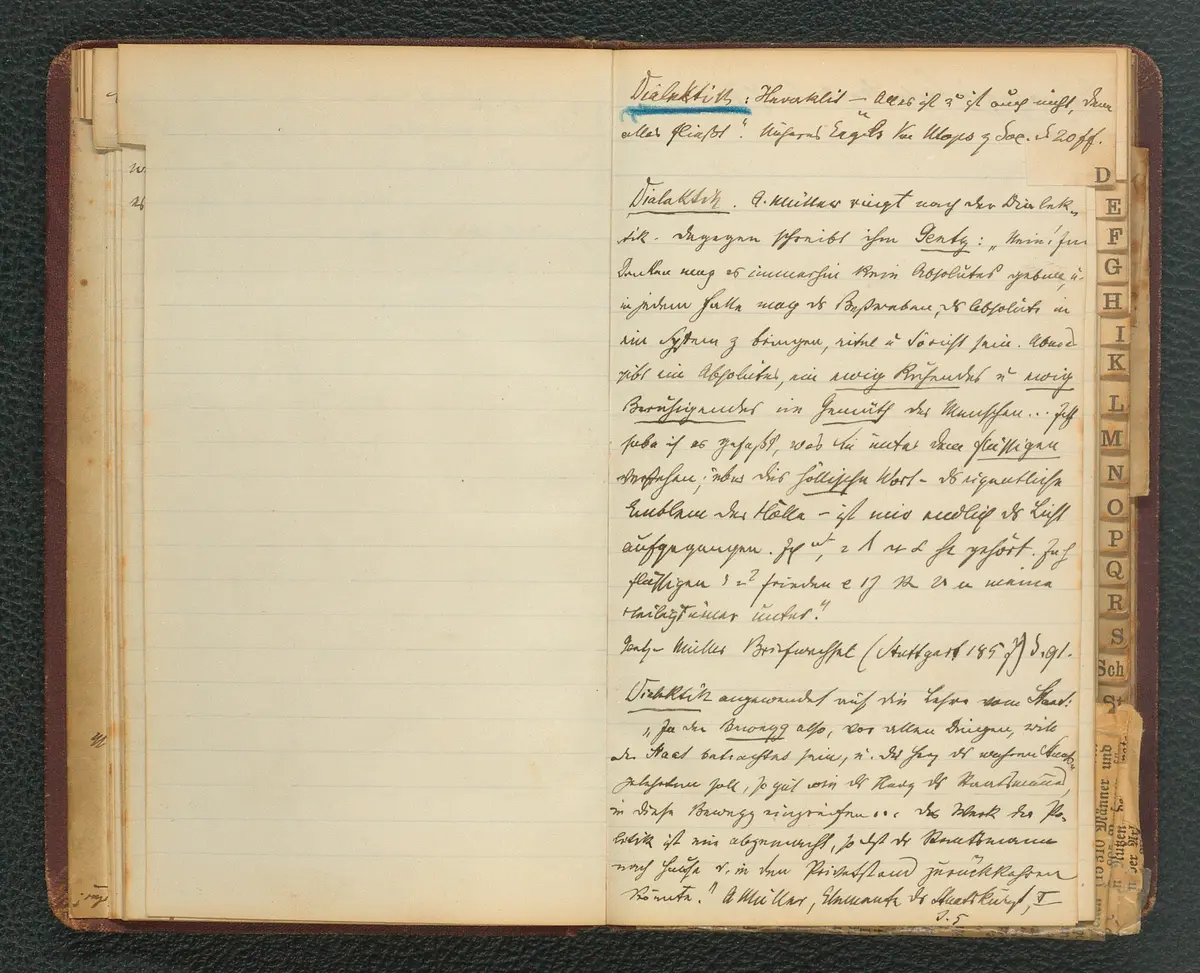 Dialektik: Heraklit – Alles ist u ist auch nicht, denn
alles fließt". Näheres Engels Von Utopie z Soc. S 20 ff.
Dialektik. A. Müller ringt nach der Dialek-
tik. Dagegen schreibt ihm Gentz: „Nein! Im
Denken mag es immerhin kein Absolutes geben, u.
in jedem Falle mag ds Bestreben, ds Absolute in
ein System z bringen, eitel u töricht sein. Aber es
gibt ein Absolutes, ein ewig Ruhendes u ewig
Beruhigendes im Gemüth des Menschen... Jetzt
habe ich es gefaßt, was Sie unter dem flüssigen
verstehen; über dies höllische Wort – ds eigentliche
Emblem der Hölle – ist mir endlich ds Licht
aufgegangen. gehört.
flüssigen frieden meine
Heiligtümer unter."
Gentz-Müller Briefwechsel (Stuttgart 1857) S. 91.
Dialektik angewendet auf die Lehre vom Staat:
„In der Bewegg also, vor allen Dingen, will
der Staat betrachtet sein, u. das Herz ds wahren Staats-
gelehrten soll, so gut wie ds Herz ds Staatsmanns,
in diese Bewegg eingreifen... Das Werk der Po-
litik ist nie abgemacht, so daß der Staatsmann
nach Hause u. in den Privatstand zurückkehren
könnte." A Müller, Elemente ds Staatskunst, I
S. 5
D
E
F
G
H
I
K
L
M
N
O
P
Q
R
S
Sch
St
310 Männer und